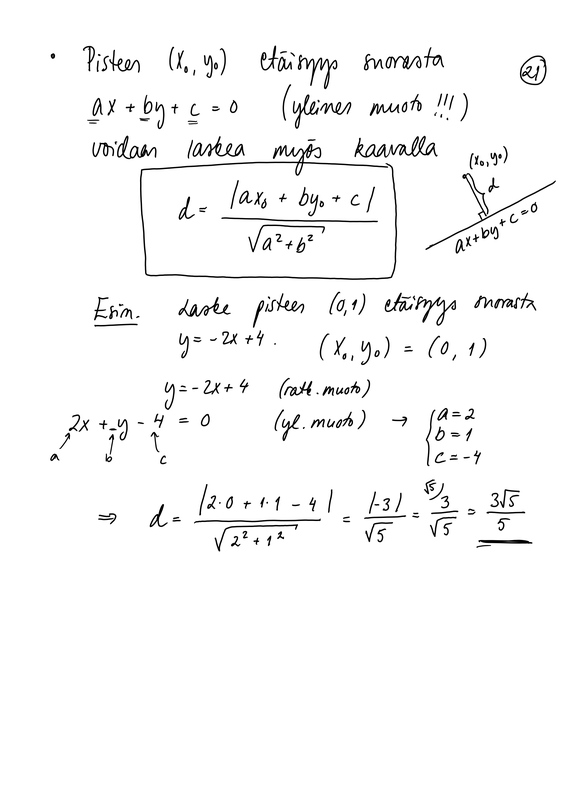 • Pisteen (x₀, y₀) etäisyys suorasta
21
ax + by + c = 0 (yleinen muoto !!!)
voidaan laskea myös kaavalla
(x₀, y₀)
d
ax+by+c=0
d = |ax₀ + by₀ + c| / √(a²+b²)
Esim. Laske pisteen (0,1) etäisyys suorasta
y = -2x+4. (x₀, y₀) = (0, 1)
y = -2x+4 (ratk. muoto)
2x + y - 4 = 0 (yl. muoto) → { a=2
b=1
c=-4
a b c
⇒ d = |2·0 + 1·1 - 4| / √(2²+1²) = |-3| / √5 = √5) 3 / √5 = 3√5 / 5